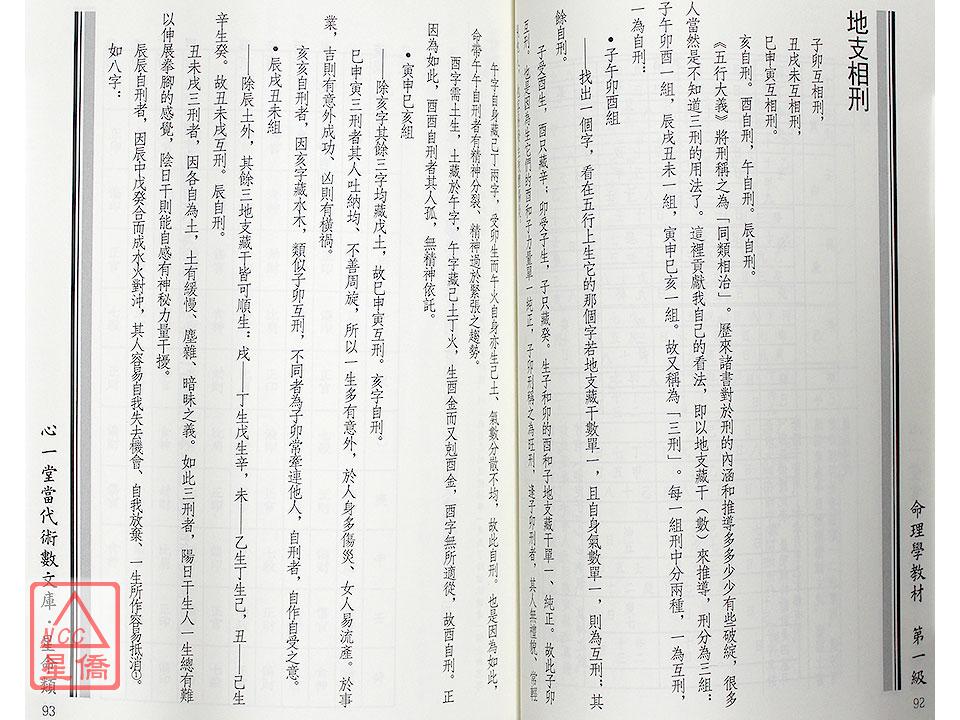 命理學教材 第一級
92
地支相刑
子卯互相刑，
丑戌未互相刑，
巳申寅互相刑。
亥自刑。酉自刑，午自刑。辰自刑。
《五行大義》將刑稱之為「同類相治」。歷來諸書對於刑的內涵和推導多多少少有些破綻，很多
人當然是不知道三刑的用法了。這裡貢獻我自己的看法，即以地支藏干（數）來推導，刑分為三組：
子午卯酉一組，辰戌丑未一組，寅申巳亥一組。故又稱為「三刑」。每一組刑中分兩種，一為互刑，
一為自刑：
•子午卯酉組
——找出一個字，看在五行上生它的那個字若地支藏干數單一，且自身氣數單一，則為互刑；其
餘自刑。
子受酉生，酉只藏辛；卯受子生，子只藏癸。生子和卯的酉和子地支藏干單一、純正。故此子卯
互刑。也是因為生它們的酉和子力量單一純正，子卯刑稱之為旺刑，逢子卯刑者，其人無禮貌、常輕
午字自身藏己丁兩字，受卯生而午火自身亦生己土、氣數分散不均，故此自刑。也是因為如此，
命帶午午自刑者有精神分裂、精神過於緊張之趨勢。
酉字需土生，土藏於午字，午字藏己土丁火，生酉金而又剋酉金，酉字無所適從，故酉自刑。正
因為如此，酉酉自刑者其人孤，無精神依託。
•寅申巳亥組
——除亥字其餘三字均藏戊土，故巳申寅互刑。亥字自刑。
巳申寅三刑者其人吐納均、不善周旋，所以一生多有意外，於人身多傷災、女人易流產。於事
業，吉則有意外成功、凶則有橫禍。
亥亥自刑者，因亥字藏水木，類似子卯互刑，不同者為子卯常牽連他人，自刑者，自作自受之意。
•辰戌丑未組
——除辰土外，其餘三地支藏干皆可順生：戌——丁生戊生辛，未——乙生丁生己，丑——己生
辛生癸。故丑未戌互刑。辰自刑。
丑未戌三刑者，因各自為土，土有緩慢、塵雜、暗昧之義。如此三刑者，陽日干生人一生總有難
以伸展拳腳的感覺，陰日干則能自感有神秘力量干擾。
辰辰自刑者，因辰中戊癸合而成水火對沖，其人容易自我失去機會、自我放棄、一生所作容易抵消①。
如八字：
心一堂當代術數文庫·星命類
93
NCC
星僑